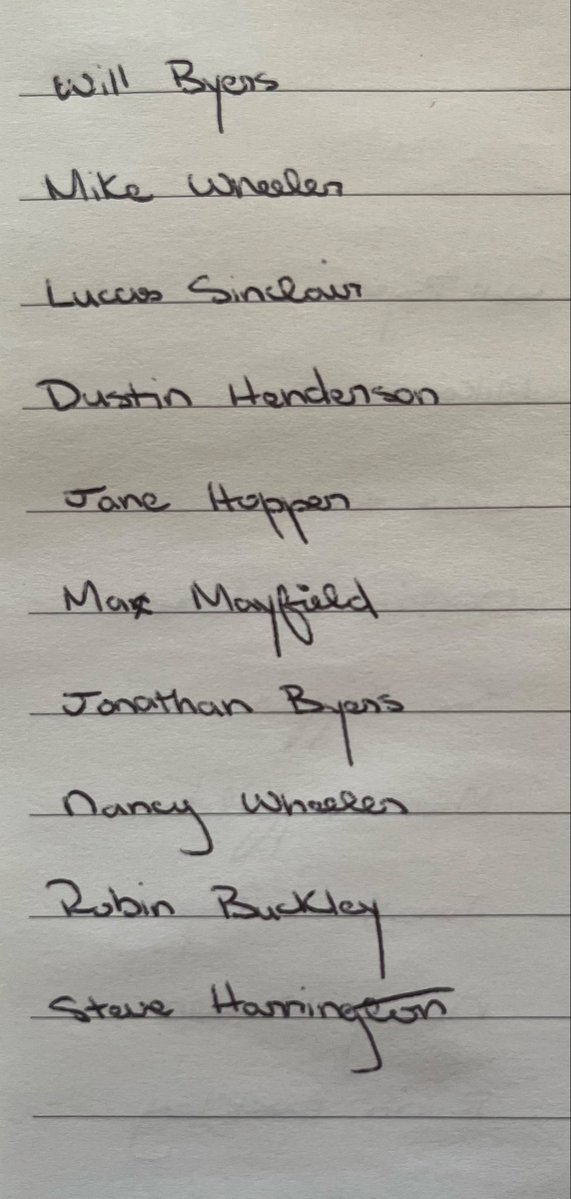 Will Byers
Mike Wheeler
Lucas Sinclair
Dustin Henderson
Jane Hopper
Max Mayfield
Jonathan Byers
Nancy Wheeler
Robin Buckley
Steve Harrington